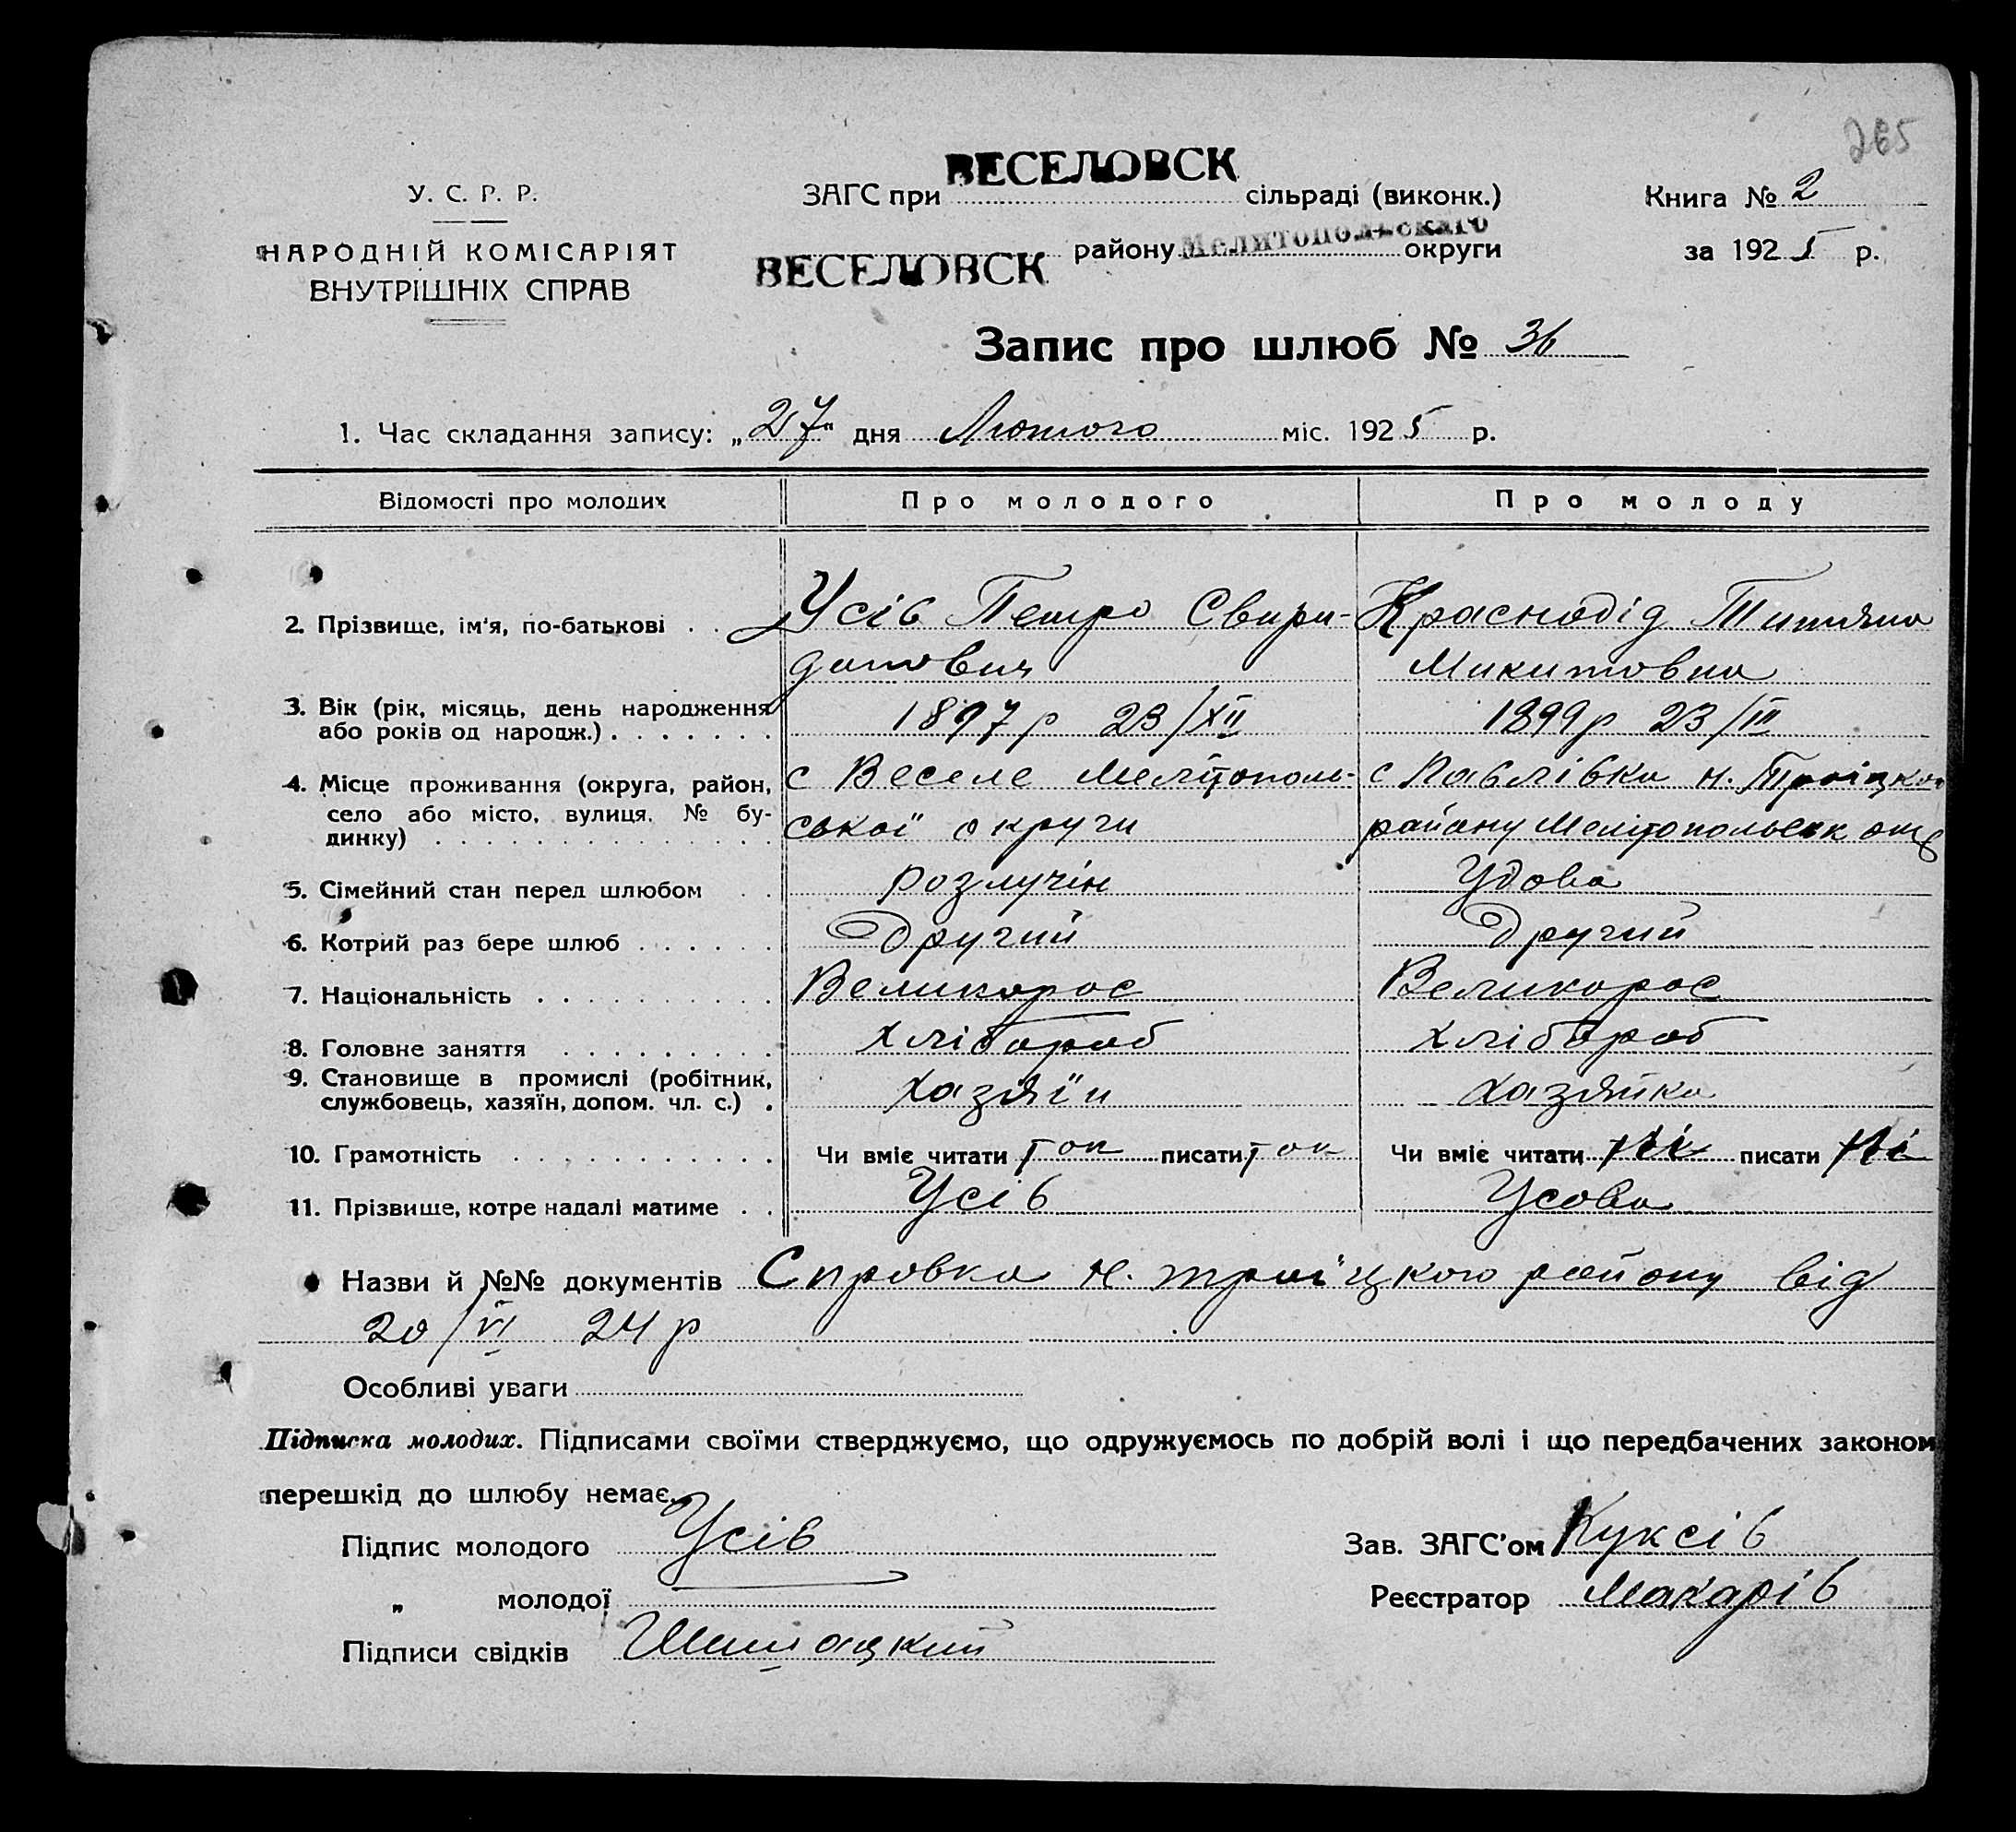 265
У. С. Р. Р.
НАРОДНІЙ КОМІСАРІЯТ
ВНУТРІШНІХ СПРАВ
ЗАГС при ВЕСЕЛОВСК сільраді (виконк.)
ВЕСЕЛОВСК району Мелитопольскаго округи
Книга № 2
за 1925 р.
Запис про шлюб № 36
1. Час складання запису: „27“ дня Лютого міс. 1925 р.
Відомості про молодих Про молодого Про молоду
2. Прізвище, ім'я, по-батькові . . Усів Петро Свири- Краснодід Титяна
донович Микитовна
3. Вік (рік, місяць, день народження
або років од народж.) . . . . . . . 1897 р 23/XII 1899 р 23/III
4. Місце проживання (округа, район, с Веселе Мелітополь- с Павлівка н. Троїцког
село або місто, вулиця, № бу-
динку) . . . . . . . . . . . . . . ської округи району Мелітопольськ
5. Сімейний стан перед шлюбом . . розлучін Удова
6. Котрий раз бере шлюб . . . . . . Другий Другий
7. Національність . . . . . . . . . . Великорос Великорос
8. Головне заняття . . . . . . . . . хлібороб хлібороб
9. Становище в промислі (робітник,
службовець, хазяїн, допом. чл. с.) . хазяїн хазяйка
10. Грамотність . . . . . . . . . . . Чи вміє читати так писати так Чи вміє читати ні писати ні
11. Прізвище, котре надалі матиме . . Усів Усова
Назви й №№ документів Справка н. троїцкого району від
20/VI 24 р
Особливі уваги
Підписка молодих. Підписами своїми стверджуємо, що одружуємось по добрій волі і що передбачених законом
перешкід до шлюбу немає.
Підпис молодого Усів Зав. ЗАГС'ом Куксів
„ молодої Реєстратор Макарів
Підписи свідків